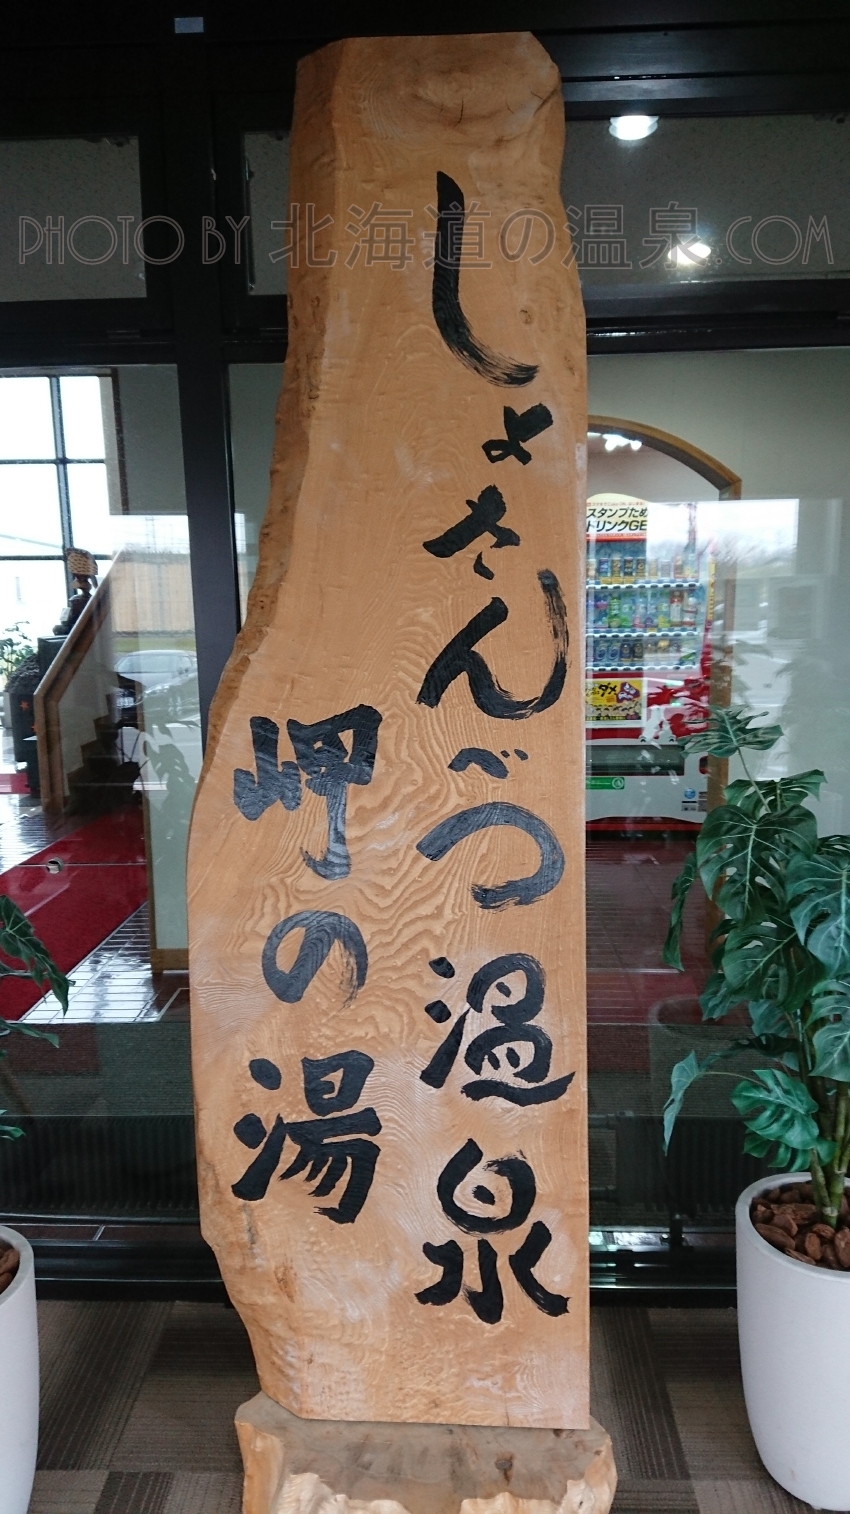 PHOTO BY 北海道の温泉.COM
しょさんべつ温泉
岬の湯
スタンプため
ドリンクGE